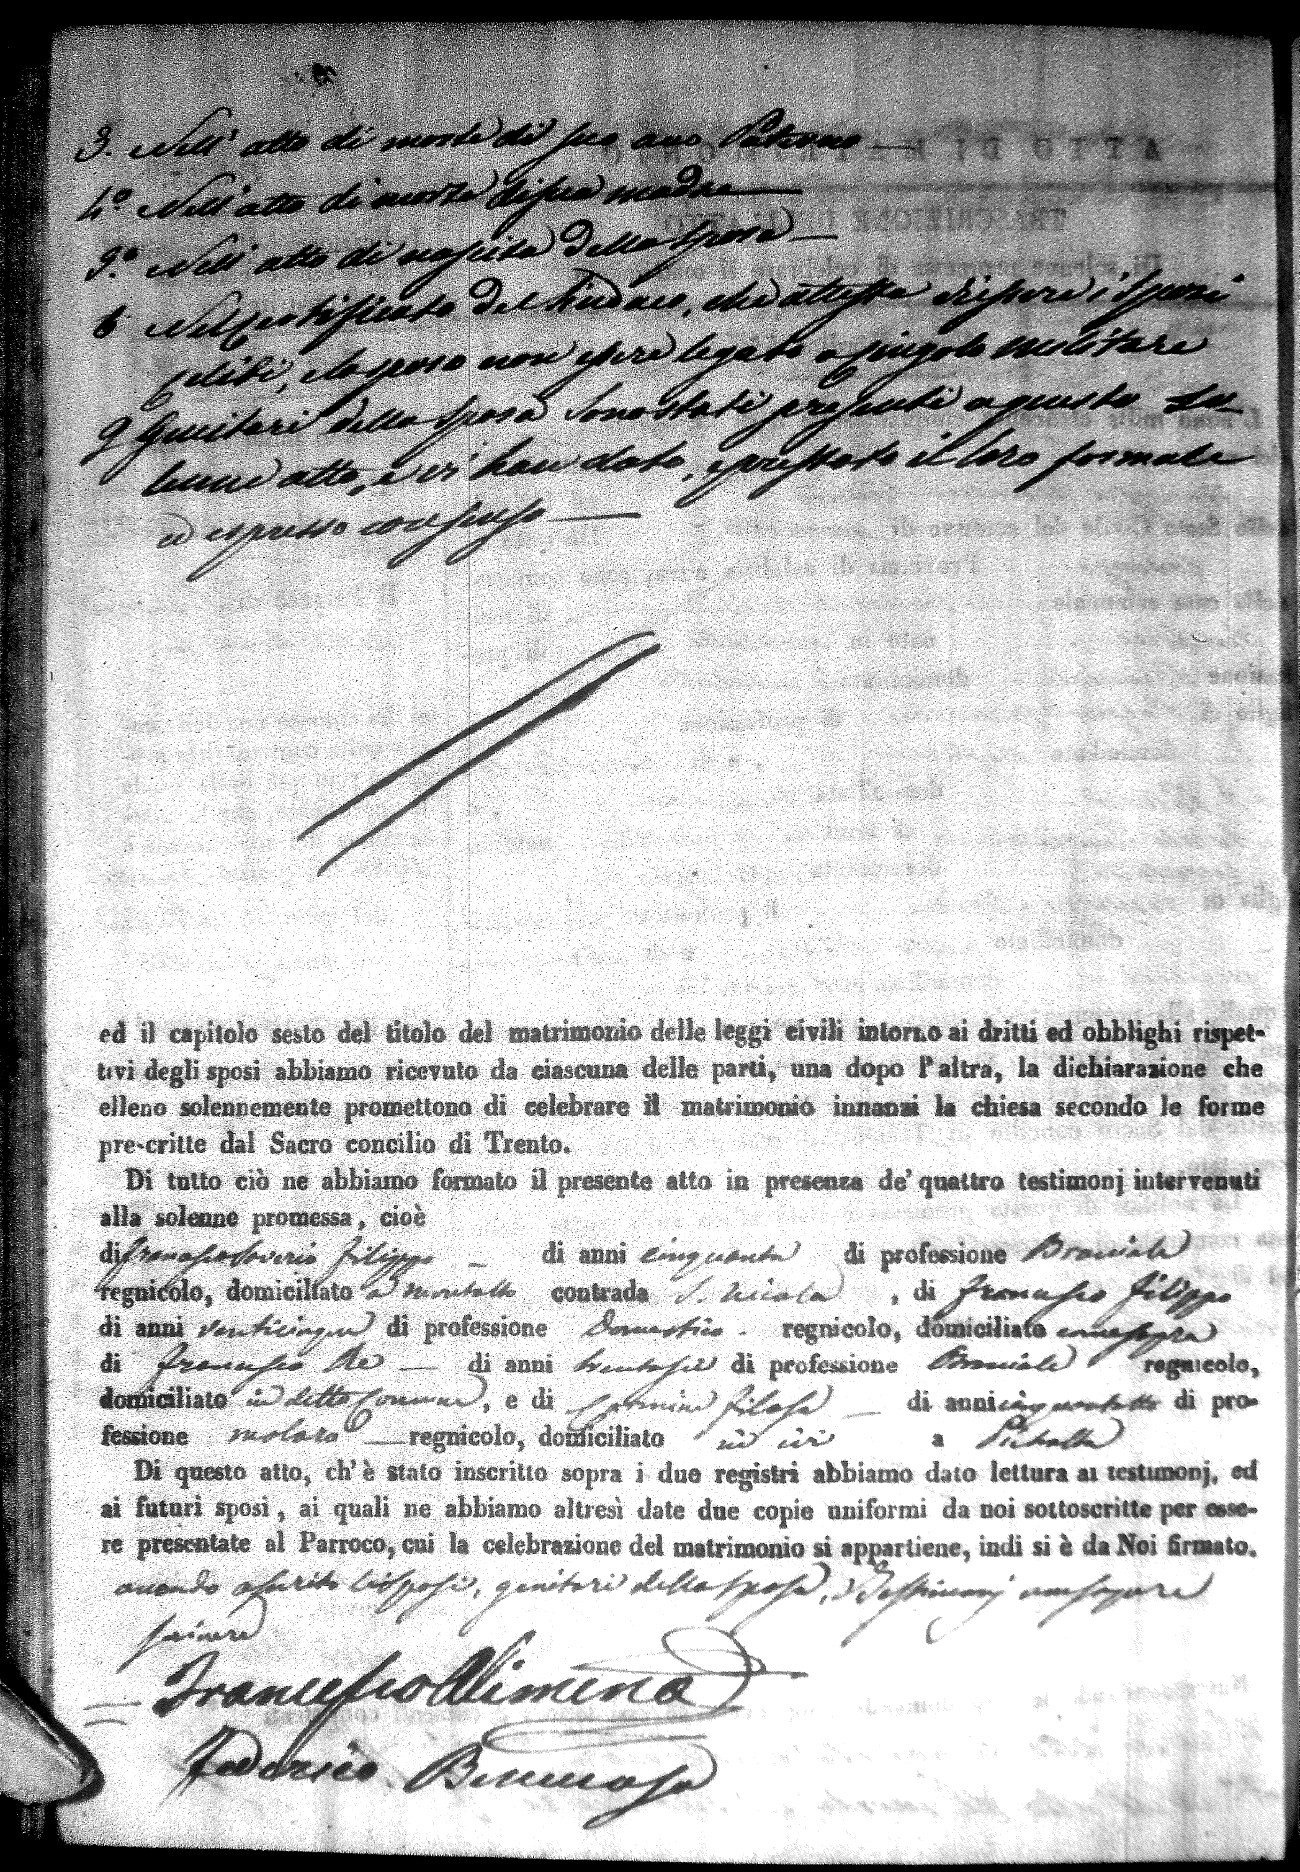 3. Nell' atto di morte di suo avo Paterno
4.° Nell' atto di morte di sua madre
5.° Nell' atto di nascita della sposa
6 Nel certificato del Sindaco, che attesta essere i sposi
celibi, e lo sposo non essere legato a vincolo militare
I Genitori della sposa sono stati presenti a questo So-
lenne atto, e vi han dato, e prestato il loro formale
ed espresso consenso
ed il capitolo sesto del titolo del matrimonio delle leggi civili intorno ai dritti ed obblighi rispet-
tivi degli sposi abbiamo ricevuto da ciascuna delle parti, una dopo l'altra, la dichiarazione che
elleno solennemente promettono di celebrare il matrimonio innanzi la chiesa secondo le forme
prescritte dal Sacro concilio di Trento.
Di tutto ciò ne abbiamo formato il presente atto in presenza de' quattro testimonj intervenuti
alla solenne promessa, cioè
di Francesco Saverio Filippo di anni cinquanta di professione Bracciale
regnicolo, domiciliato a Montalto contrada S. Nicola, di Francesco Filippo
di anni venticinque di professione Domestico. regnicolo, domiciliato come sopra
di Francesco Re di anni trentasei di professione Bracciale regnicolo,
domiciliato in detto Comune, e di Carmine Filosa di anni cinquantotto di pro-
fessione molaro regnicolo, domiciliato in ivi a
Di questo atto, ch'è stato inscritto sopra i due registri abbiamo dato lettura ai testimonj, ed
ai futuri sposi, ai quali ne abbiamo altresì date due copie uniformi da noi sottoscritte per esse-
re presentate al Parroco, cui la celebrazione del matrimonio si appartiene, indi si è da Noi firmato.
avendo asserito li sposi, genitori della sposa, e Testimonj non sapere
scrivere
Francesco Alimena
Federico